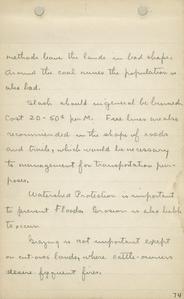 methods leave the lands in bad shape.
Around the coal mines the population is
also bad.
Slash should in general be burned.
Cost 20-50¢ per M. Fire lines are also
recommended in the shape of roads
and trails, which would be necessary
to management for transportation pur-
poses.
Watershed Protection is important
to prevent Floods. Erosion is also liable
to occur.
Grazing is not important except
on cut-over lands, where cattle-owners
desire frequent fires.
74